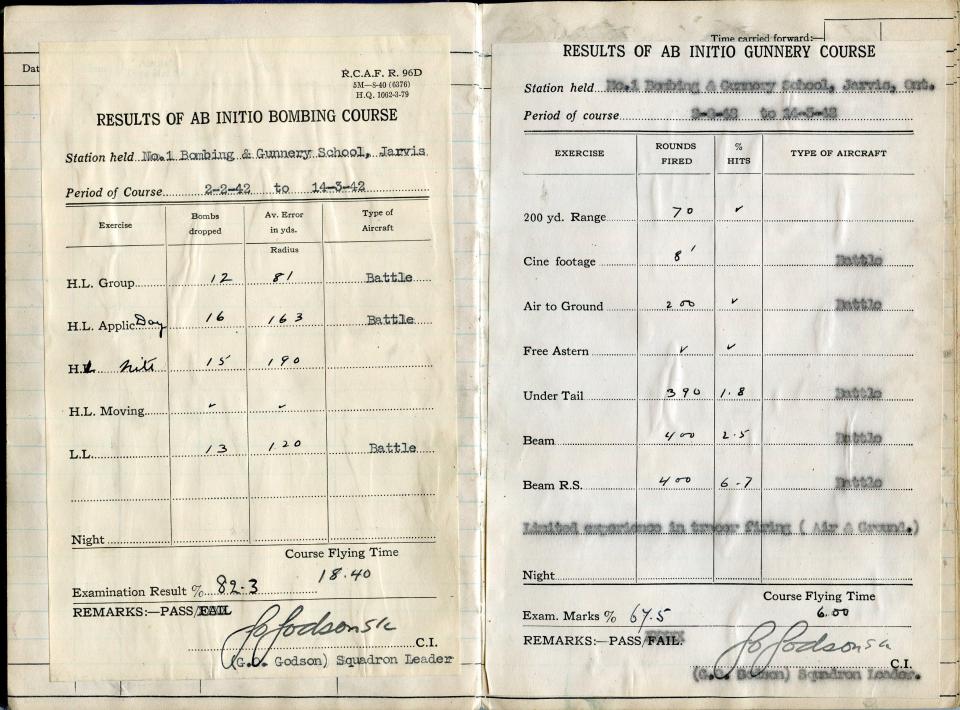 Dat
R.C.A.F. R. 96D
5M—8-40 (6376)
H.Q. 1062-3-79
RESULTS OF AB INITIO BOMBING COURSE
Station held No.1 Bombing & Gunnery School, Jarvis
Period of Course 2-2-42 to 14-3-42
Exercise Bombs dropped Av. Error in yds. Type of Aircraft
Radius
H.L. Group 12 81 Battle
H.L. Applic Day 16 163 Battle
H.L. Nite 15 190
H.L. Moving ✓ ✓
L.L. 13 120 Battle
Night
Course Flying Time
18.40
Examination Result % 82.3
REMARKS:—PASS/FAIL
C.I.
(G.O. Godson) Squadron Leader
Time carried forward:—
RESULTS OF AB INITIO GUNNERY COURSE
Station held No.1 Bombing & Gunnery School, Jarvis, Ont.
Period of course 2-2-42 to 14-3-42
EXERCISE ROUNDS FIRED % HITS TYPE OF AIRCRAFT
200 yd. Range 70 ✓
Cine footage 8' Battle
Air to Ground 200 ✓ Battle
Free Astern ✓ ✓
Under Tail 390 1.8 Battle
Beam 400 2.5 Battle
Beam R.S. 400 6.7 Battle
Limited experience in tracer firing ( Air & Ground.)
Night
Course Flying Time
6.00
Exam. Marks % 67.5
REMARKS:—PASS/FAIL.
C.I.
Godson) Squadron Leader.